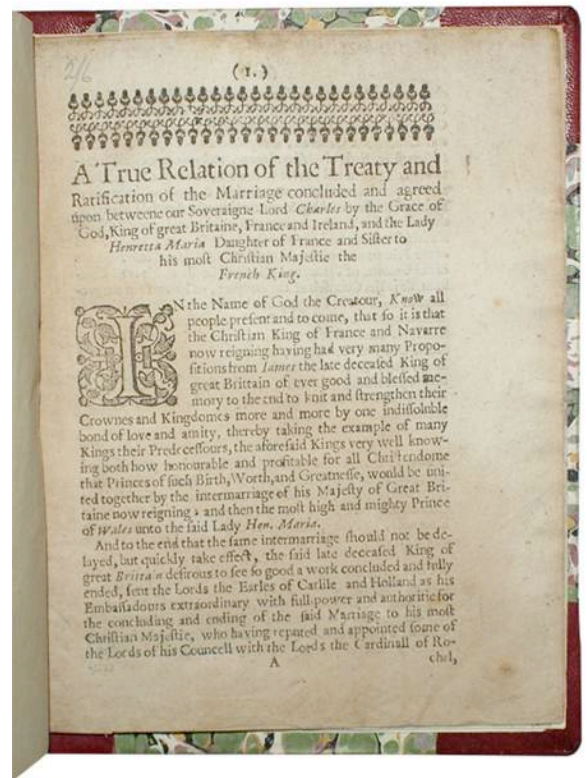 2/6
(1.)
A True Relation of the Treaty and
Ratification of the Marriage concluded and agreed
upon betweene our Soveraigne Lord Charles by the Grace of
God, King of great Britaine, France and Ireland, and the Lady
Henretta Maria Daughter of France and Sister to
his most Christian Majestie the
French King.
IN the Name of God the Creatour, Know all
people present and to come, that so it is that
the Christian King of France and Navarre
now reigning having had very many Propo-
sitions from Iames the late deceased King of
great Brittain of ever good and blessed me-
mory to the end to knit and strengthen their
Crownes and Kingdomes more and more by one indissoluble
bond of love and amity, thereby taking the example of many
Kings their Predecessours, the aforesaid Kings very well know-
ing both how honourable and profitable for all Christendome
that Princes of such Birth, Worth, and Greatnesse, would be uni-
ted together by the intermarriage of his Majesty of Great Bri-
taine now reigning, and then the most high and mighty Prince
of Wales unto the said Lady Hen. Maria.
And to the end that the same intermarriage should not be de-
layed, but quickly take effect, the said late deceased King of
great Brittain desirous to see so good a work concluded and fully
ended, sent the Lords the Earles of Carlile and Holland as his
Embassadours extraordinary with full power and authoritie for
the concluding and ending of the said Marriage to his most
Christian Majestie, who having reputed and appointed some of
the Lords of his Councell with the Lords the Cardinall of Ro-
A chel,